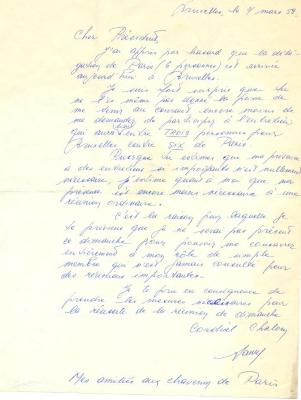 Bruxelles, le 4 mars 59
Cher Président,
J'ai appris par hasard que la délé-
gation de Paris (6 personnes) est arrivée
aujourd'hui à Bruxelles.
Je suis fort surpris que tu
ne t'es même pas donné la peine de
me tenir au courant encore moins de
me demander de participer à l'entretien
qui aura lieu entre TROIS personnes pour
Bruxelles contre SIX de Paris.
Puisque tu estimes que ma présence
à des entretiens si importants n'est nullement
nécessaire, j'estime quant à moi que ma
présence est encore moins nécessaire à une
réunion ordinaire.
C'est la raison pour laquelle je
te préviens que je ne serai pas présent
ce dimanche pour pouvoir me consacrer
entièrement à mon rôle de simple
membre qui n'est jamais consulté pour
des réunions importantes.
Je te prie en conséquence de
prendre les mesures nécessaires pour
la réussite de la réunion de dimanche
Cordial Chalom
Mes amitiés aux chaverim de Paris